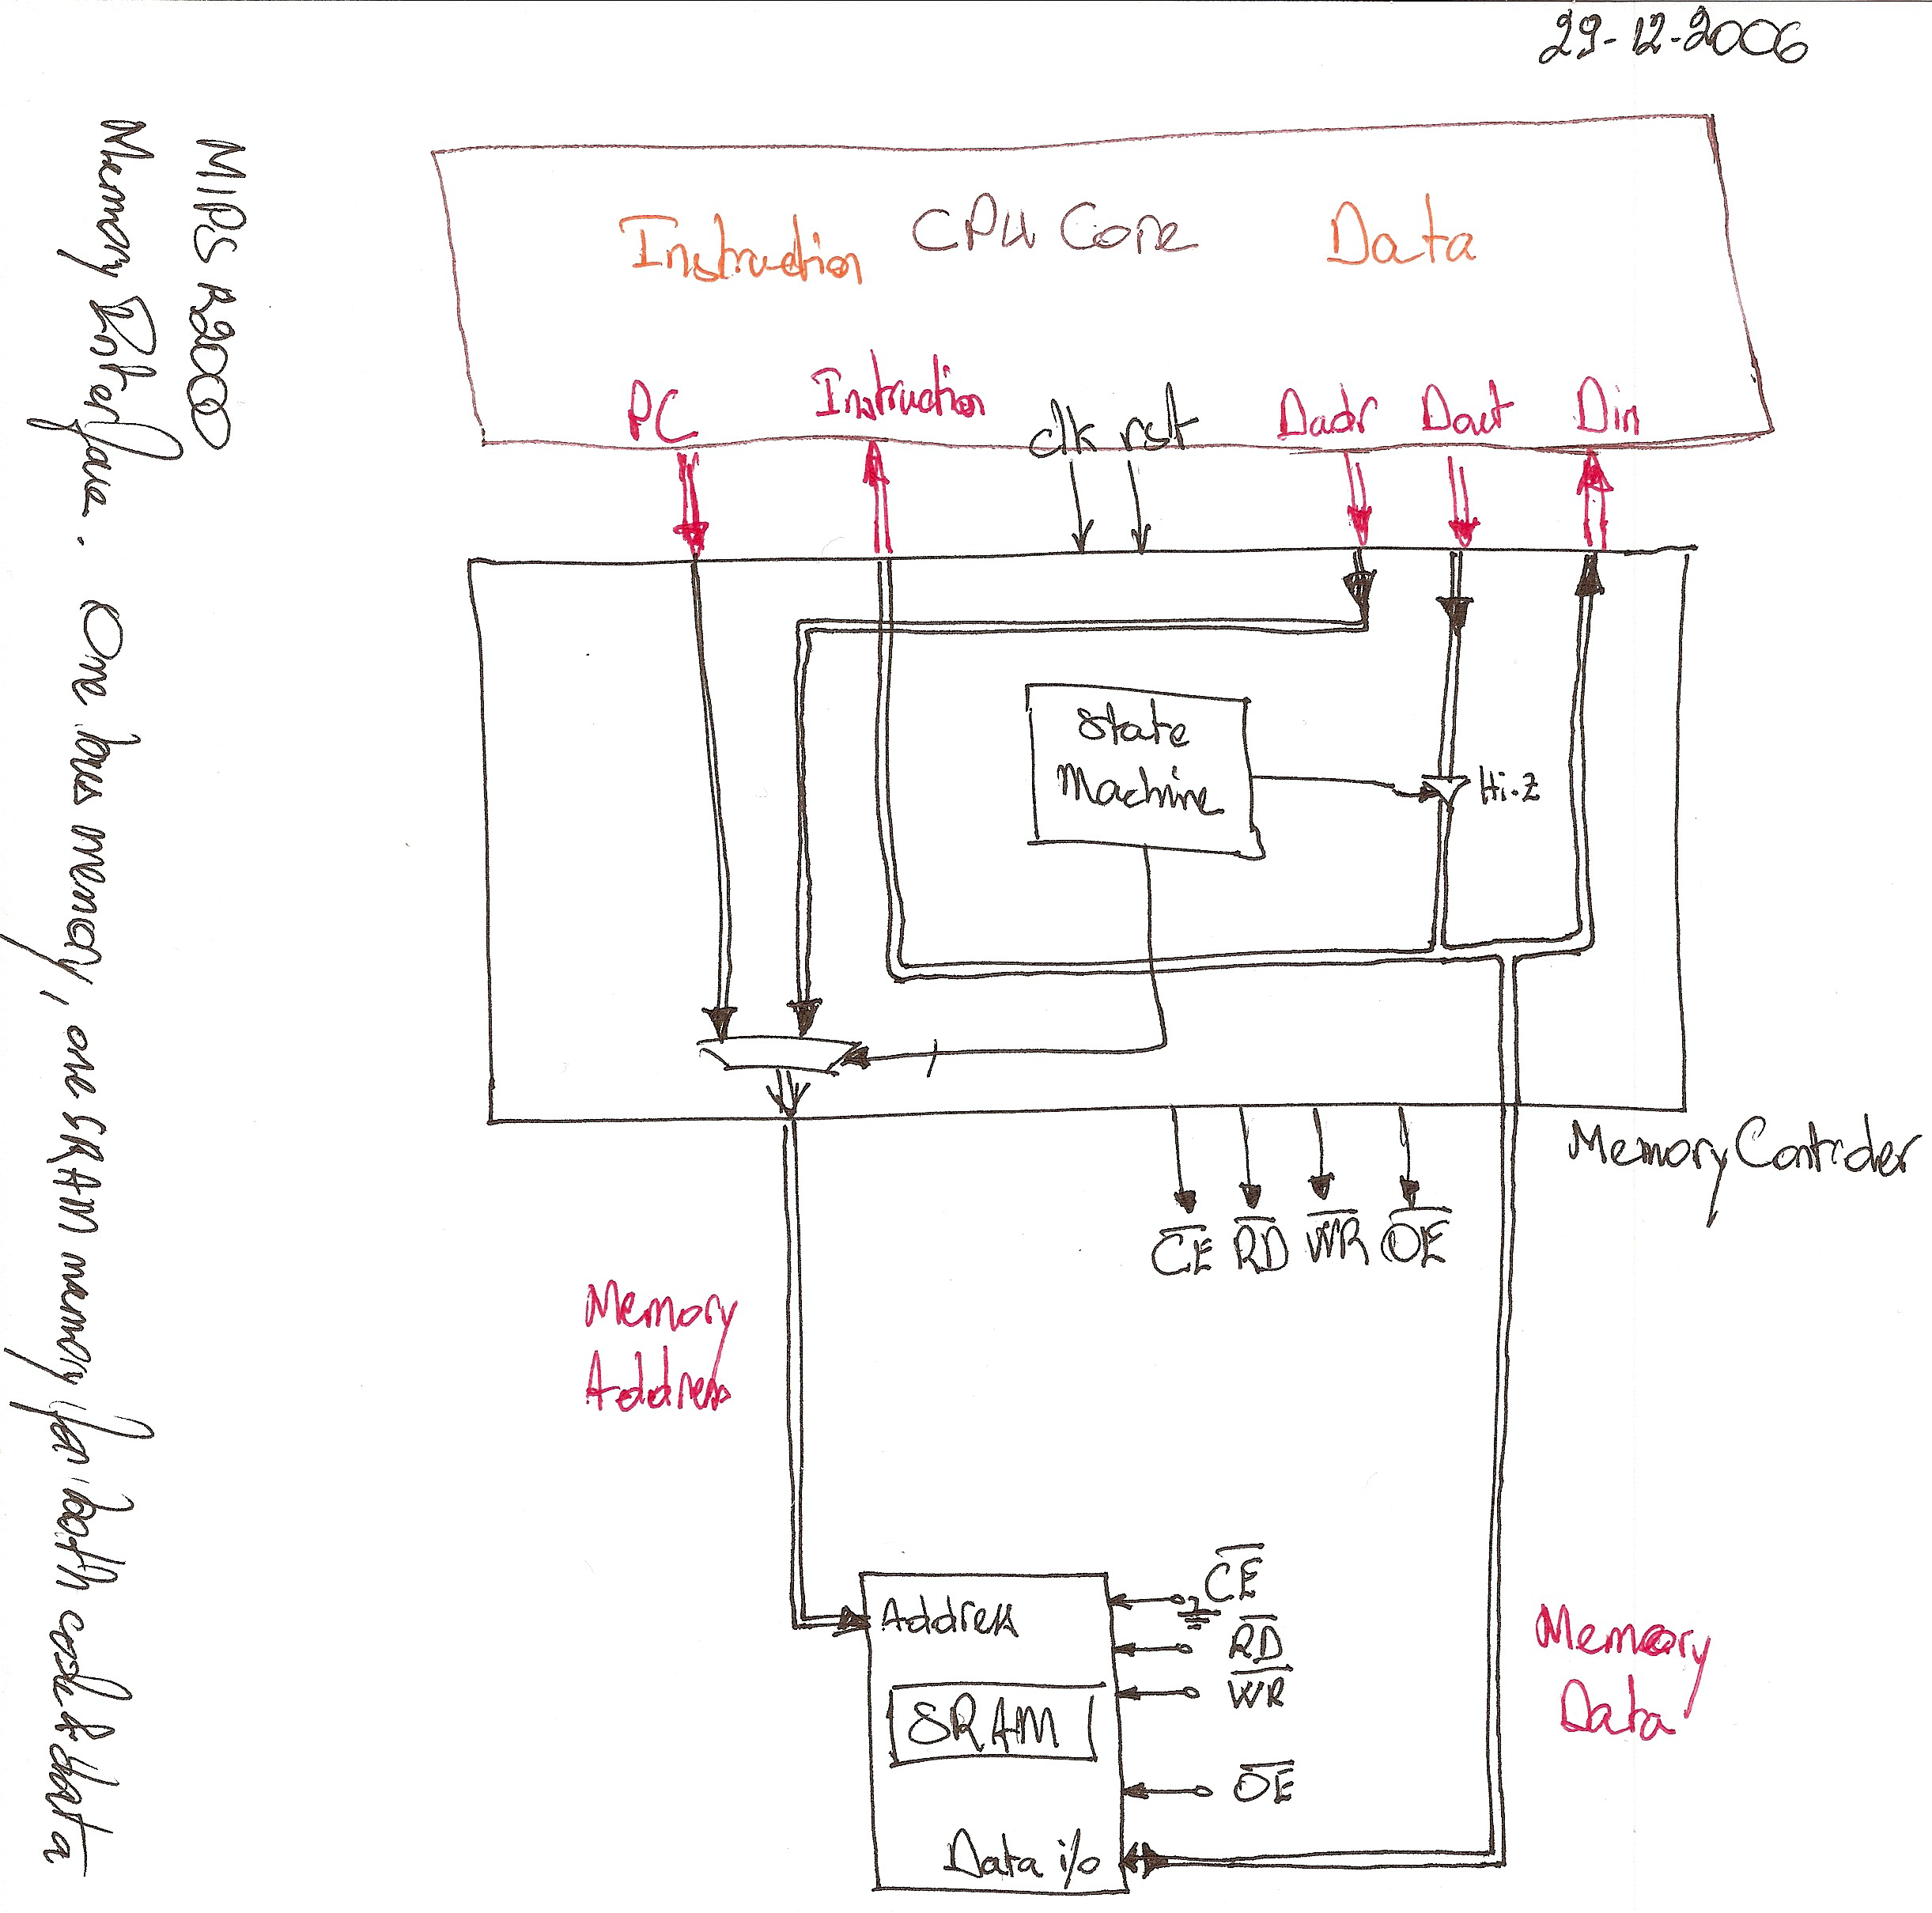 29-12-2006
MIPS R2000
Memory Interface. One bus memory, one SRAM memory for both code & data
CPU Core
Instruction
Data
PC
Instruction
clk
rst
Dadr
Dout
Din
State
Machine
Hi-Z
Memory Controler
CE
RD
WR
OE
Memory
Address
Address
CE
RD
WR
SRAM
OE
Data i/o
Memory
Data